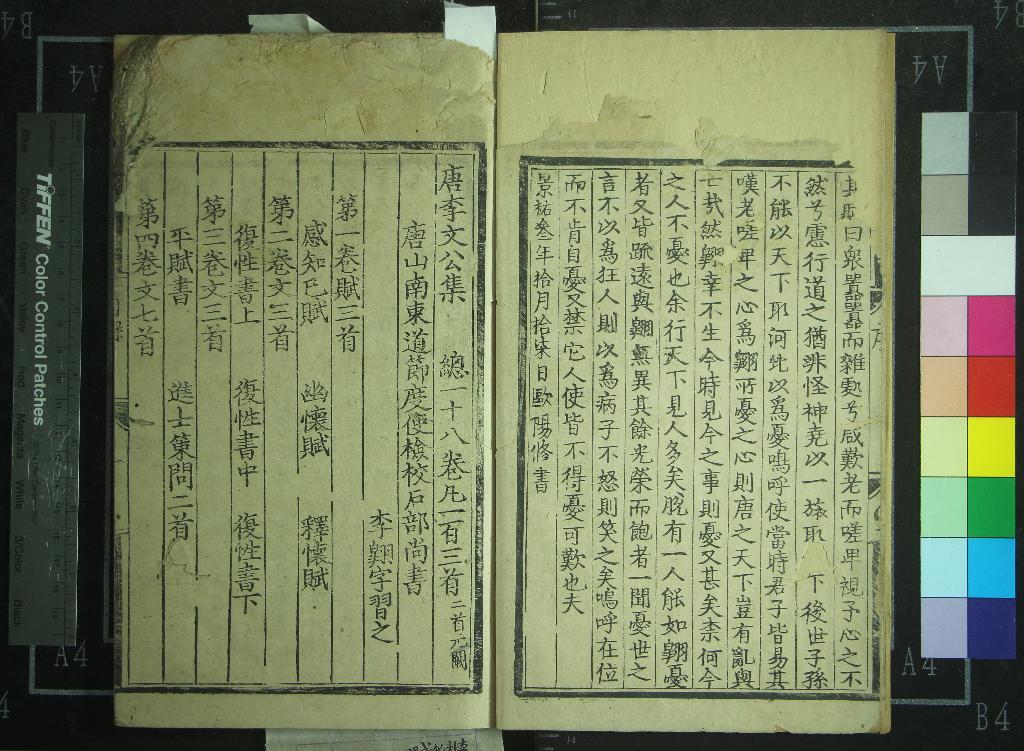 其賦曰衆囂囂而雜處兮咸歎老而嗟卑視予心之不
然兮慮行道之猶非怪神堯以一旅取 下後世子孫
不能以天下取河北以爲憂嗚呼使當時君子皆易其
嘆老嗟卑之心爲翺所憂之心則唐之天下豈有亂與
亡哉然翺幸不生今時見今之事則憂又甚矣柰何今
之人不憂也余行天下見人多矣脫有一人能如翺憂
者又皆疏遠與翺無異其餘光榮而飽者一聞憂世之
言不以爲狂人則以爲病子不怒則笑之矣嗚呼在位
而不肯自憂又禁它人使皆不得憂可歎也夫
景祐叁年拾月拾柒日歐陽修書
唐李文公集 總一十八卷凡一百三首二首元闕
唐山南東道節度使檢校戶部尚書
李翺字習之
第一卷賦三首
感知己賦 幽懷賦 釋懷賦
第二卷文三首
復性書上 復性書中 復性書下
第三卷文三首
平賦書 進士策問二首
第四卷文七首
TIFFEN Color Control Patches
Blue Cyan Green Yellow Red Magenta White 3/Color Black
Centimetres
A4
A4
A4
A4
B4
B4
B4